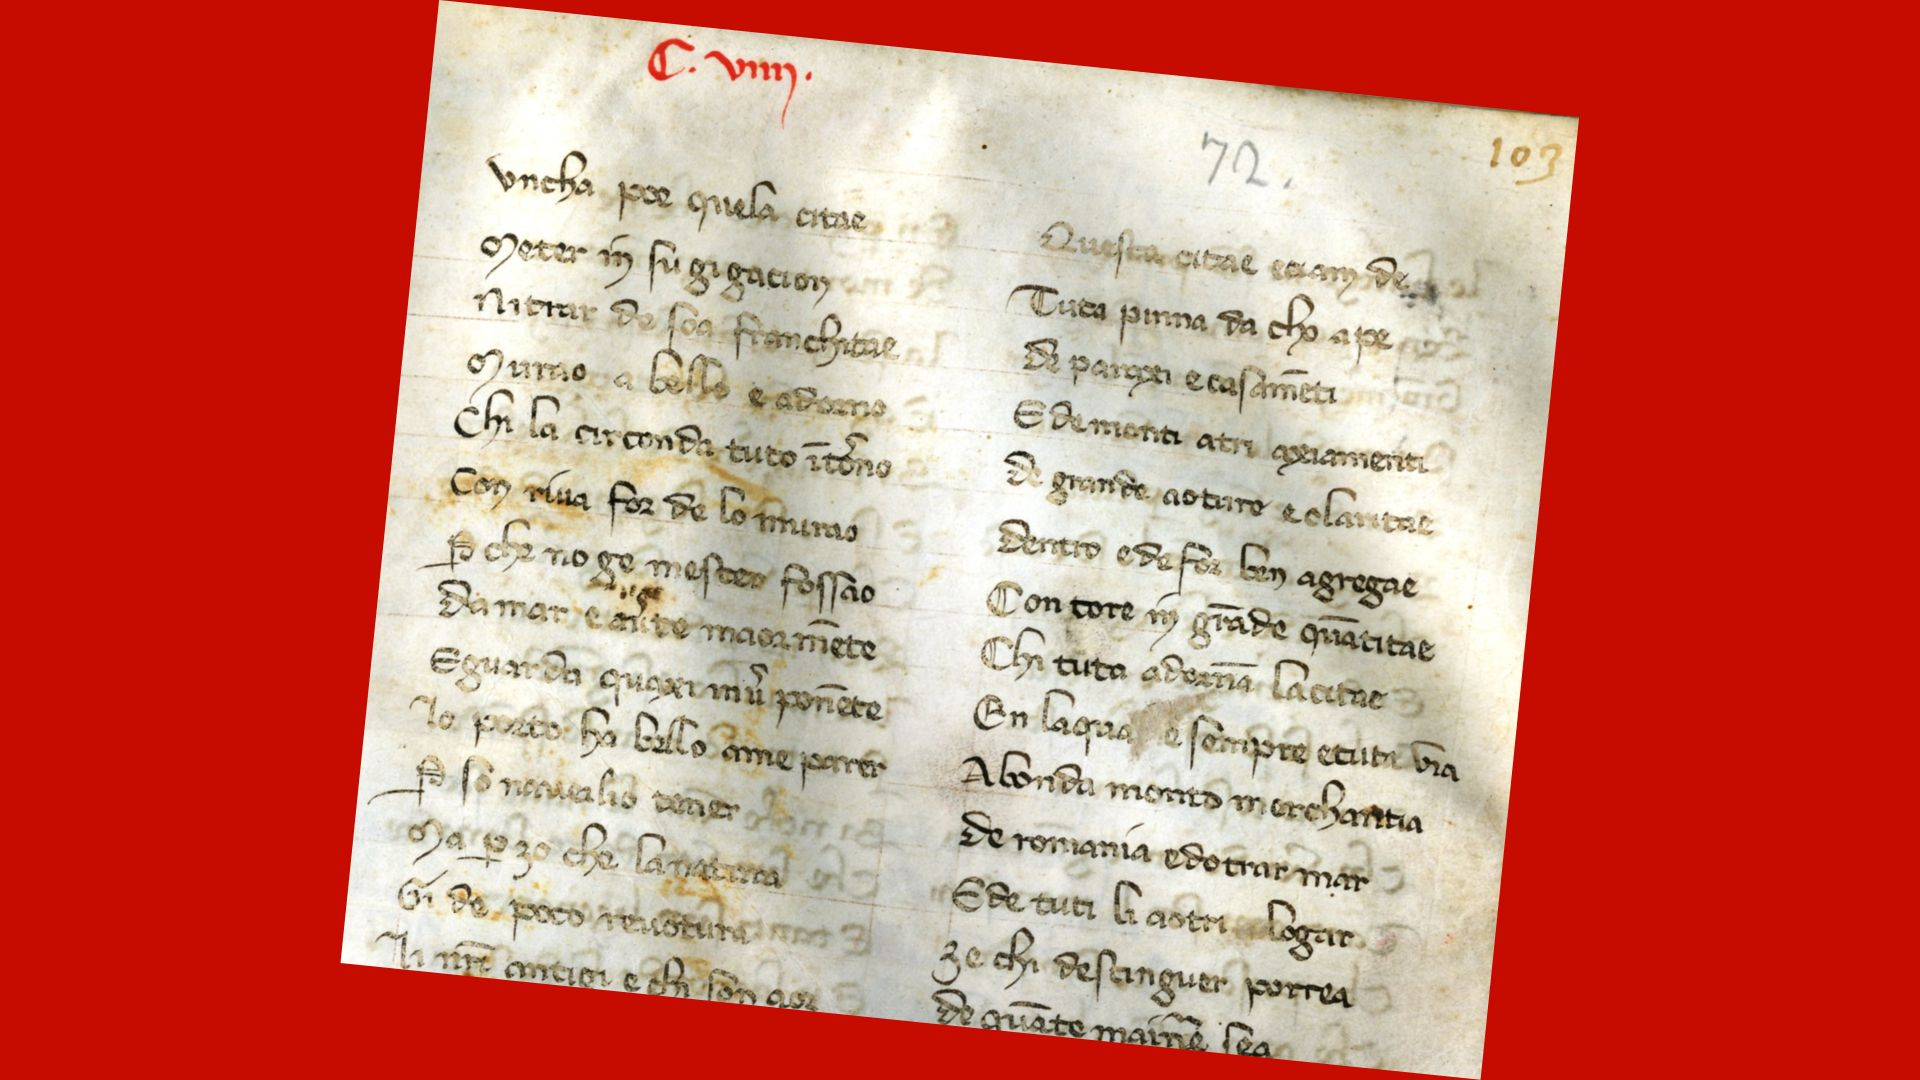 C. viiij.
72.
103
Uncha poe quela citae
Meter in sugigacion
Ni trar de soa franchitae
Murao a bello e adorno
Chi la circonda tuto ītorno
Con riva for de lo murao
P che no ge mester fossao
Da mar e maormēte
Sguarda quaxi ponēte
Lo porto ha bello a me parer
P so naveilio tener
Ma p zo che la natura
Gi de poco revotura
Li nrī antigi e chi son aor
Questa citae eciam de
Tuta pinna da cho a pe
de paraxi e casamēti
E de monti atri axiamenti
de grande aoture e claritae
dentro e de for ben agregae
Con tore in grāde quātitae
Chi tuta adornā la citae
En la qua e sempre e tuta via
Abonda monto merchantia
de romania e dotrar mar
E de tuti li aotri logar
Ze chi destinguer porrea
de quāte mainē sea